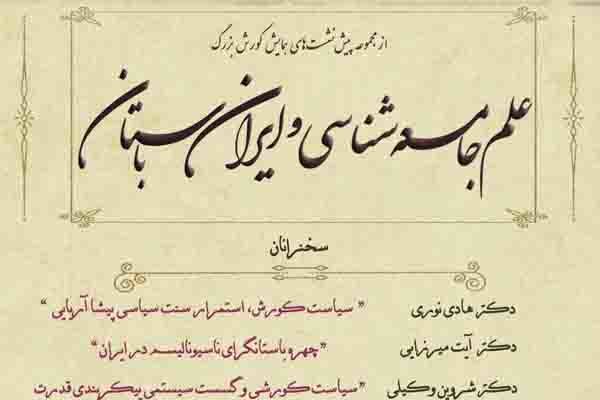 از مجموعه پیش نشست‌های همایش کورش بزرگ
علم جامعه شناسی و ایران باستان
سخنرانان
دکتر هادی نوری " سیاست کورش، استمرار سنت سیاسی پیشا آریایی "
دکتر آیت میرزایی " چهره باستانگرای ناسیونالیسم در ایران "
دکتر شروین وکیلی " سیاست کورشی و گسست سیستمی پیکربندی قدرت